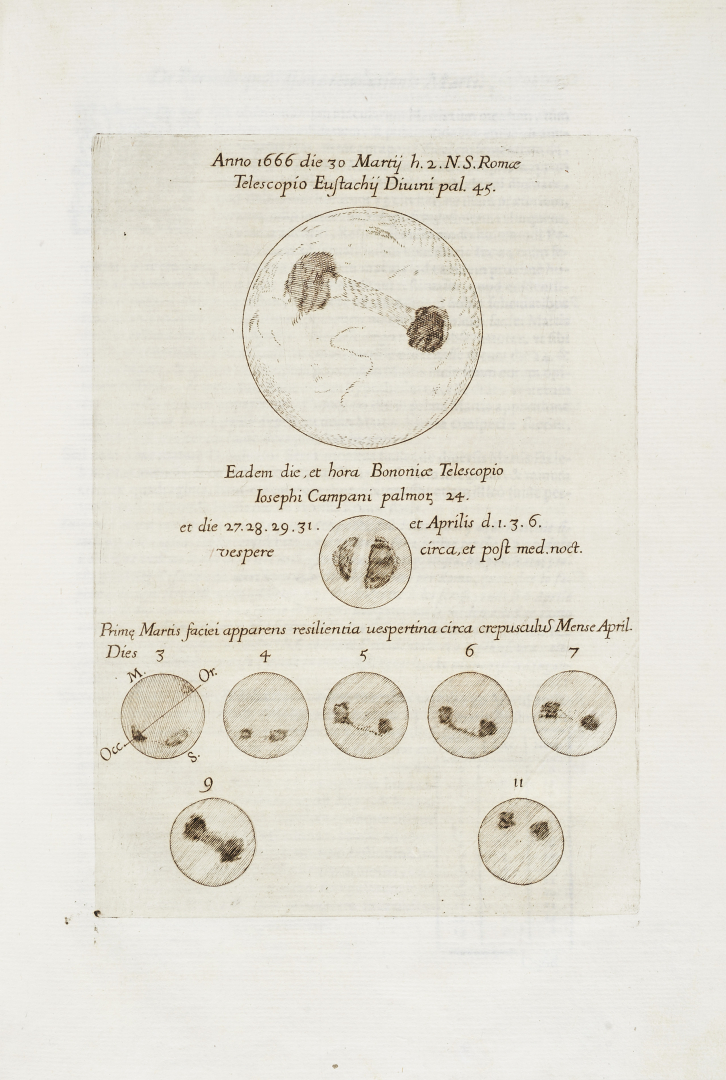 Anno 1666 die 30 Martij h. 2. N. S. Romæ
Telescopio Euſtachij Diuini pal. 45.
Eadem die, et hora Bononiæ Telescopio
Iosephi Campani palmoꝝ 24.
et die 27. 28. 29. 31. et Aprilis d. 1. 3. 6.
vespere circa, et poſt med. noct.
Primę Martis faciei apparens resilientia uespertina circa crepusculũ Mense April.
Dies 3 4 5 6 7
M. Or.
Occ. S.
9 11